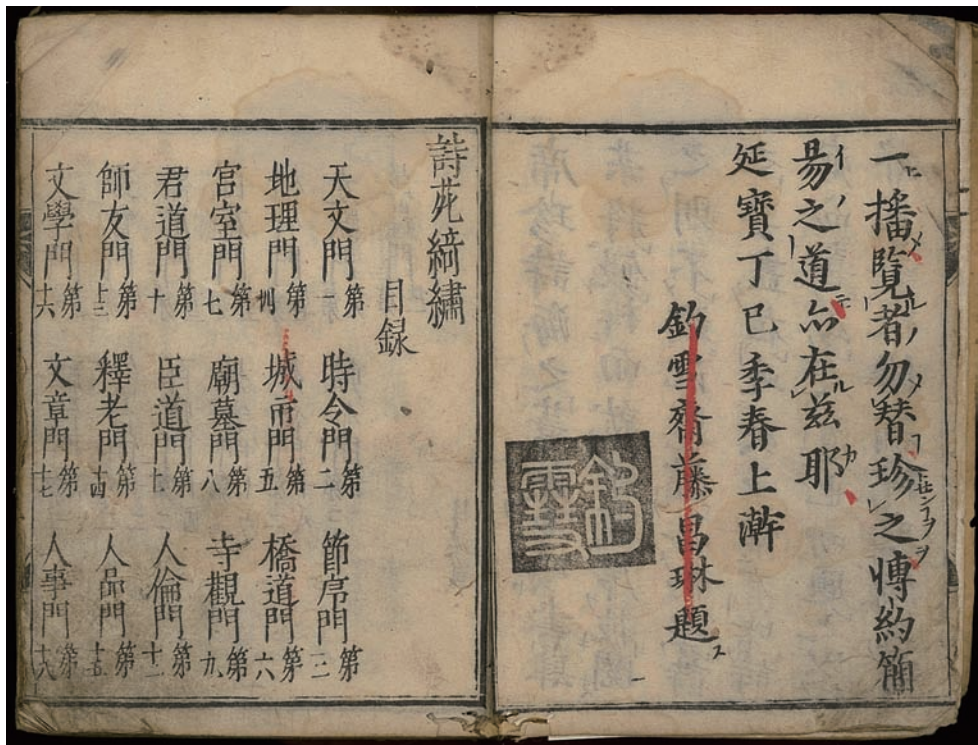 一播覽者勿替珍之博約簡
易之道亦在茲耶
延寶丁巳季春上澣
釣雪齋藤昌琳題
釣雪
詩苑綺繡
目録
天文門第一 時令門第二 節序門第三
地理門第四 城市門第五 橋道門第六
宮室門第七 廟墓門第八 寺觀門第九
君道門第十 臣道門第十一 人倫門第十二
師友門第十三 釋老門第十四 人品門第十五
文學門第十六 文章門第十七 人事門第十八